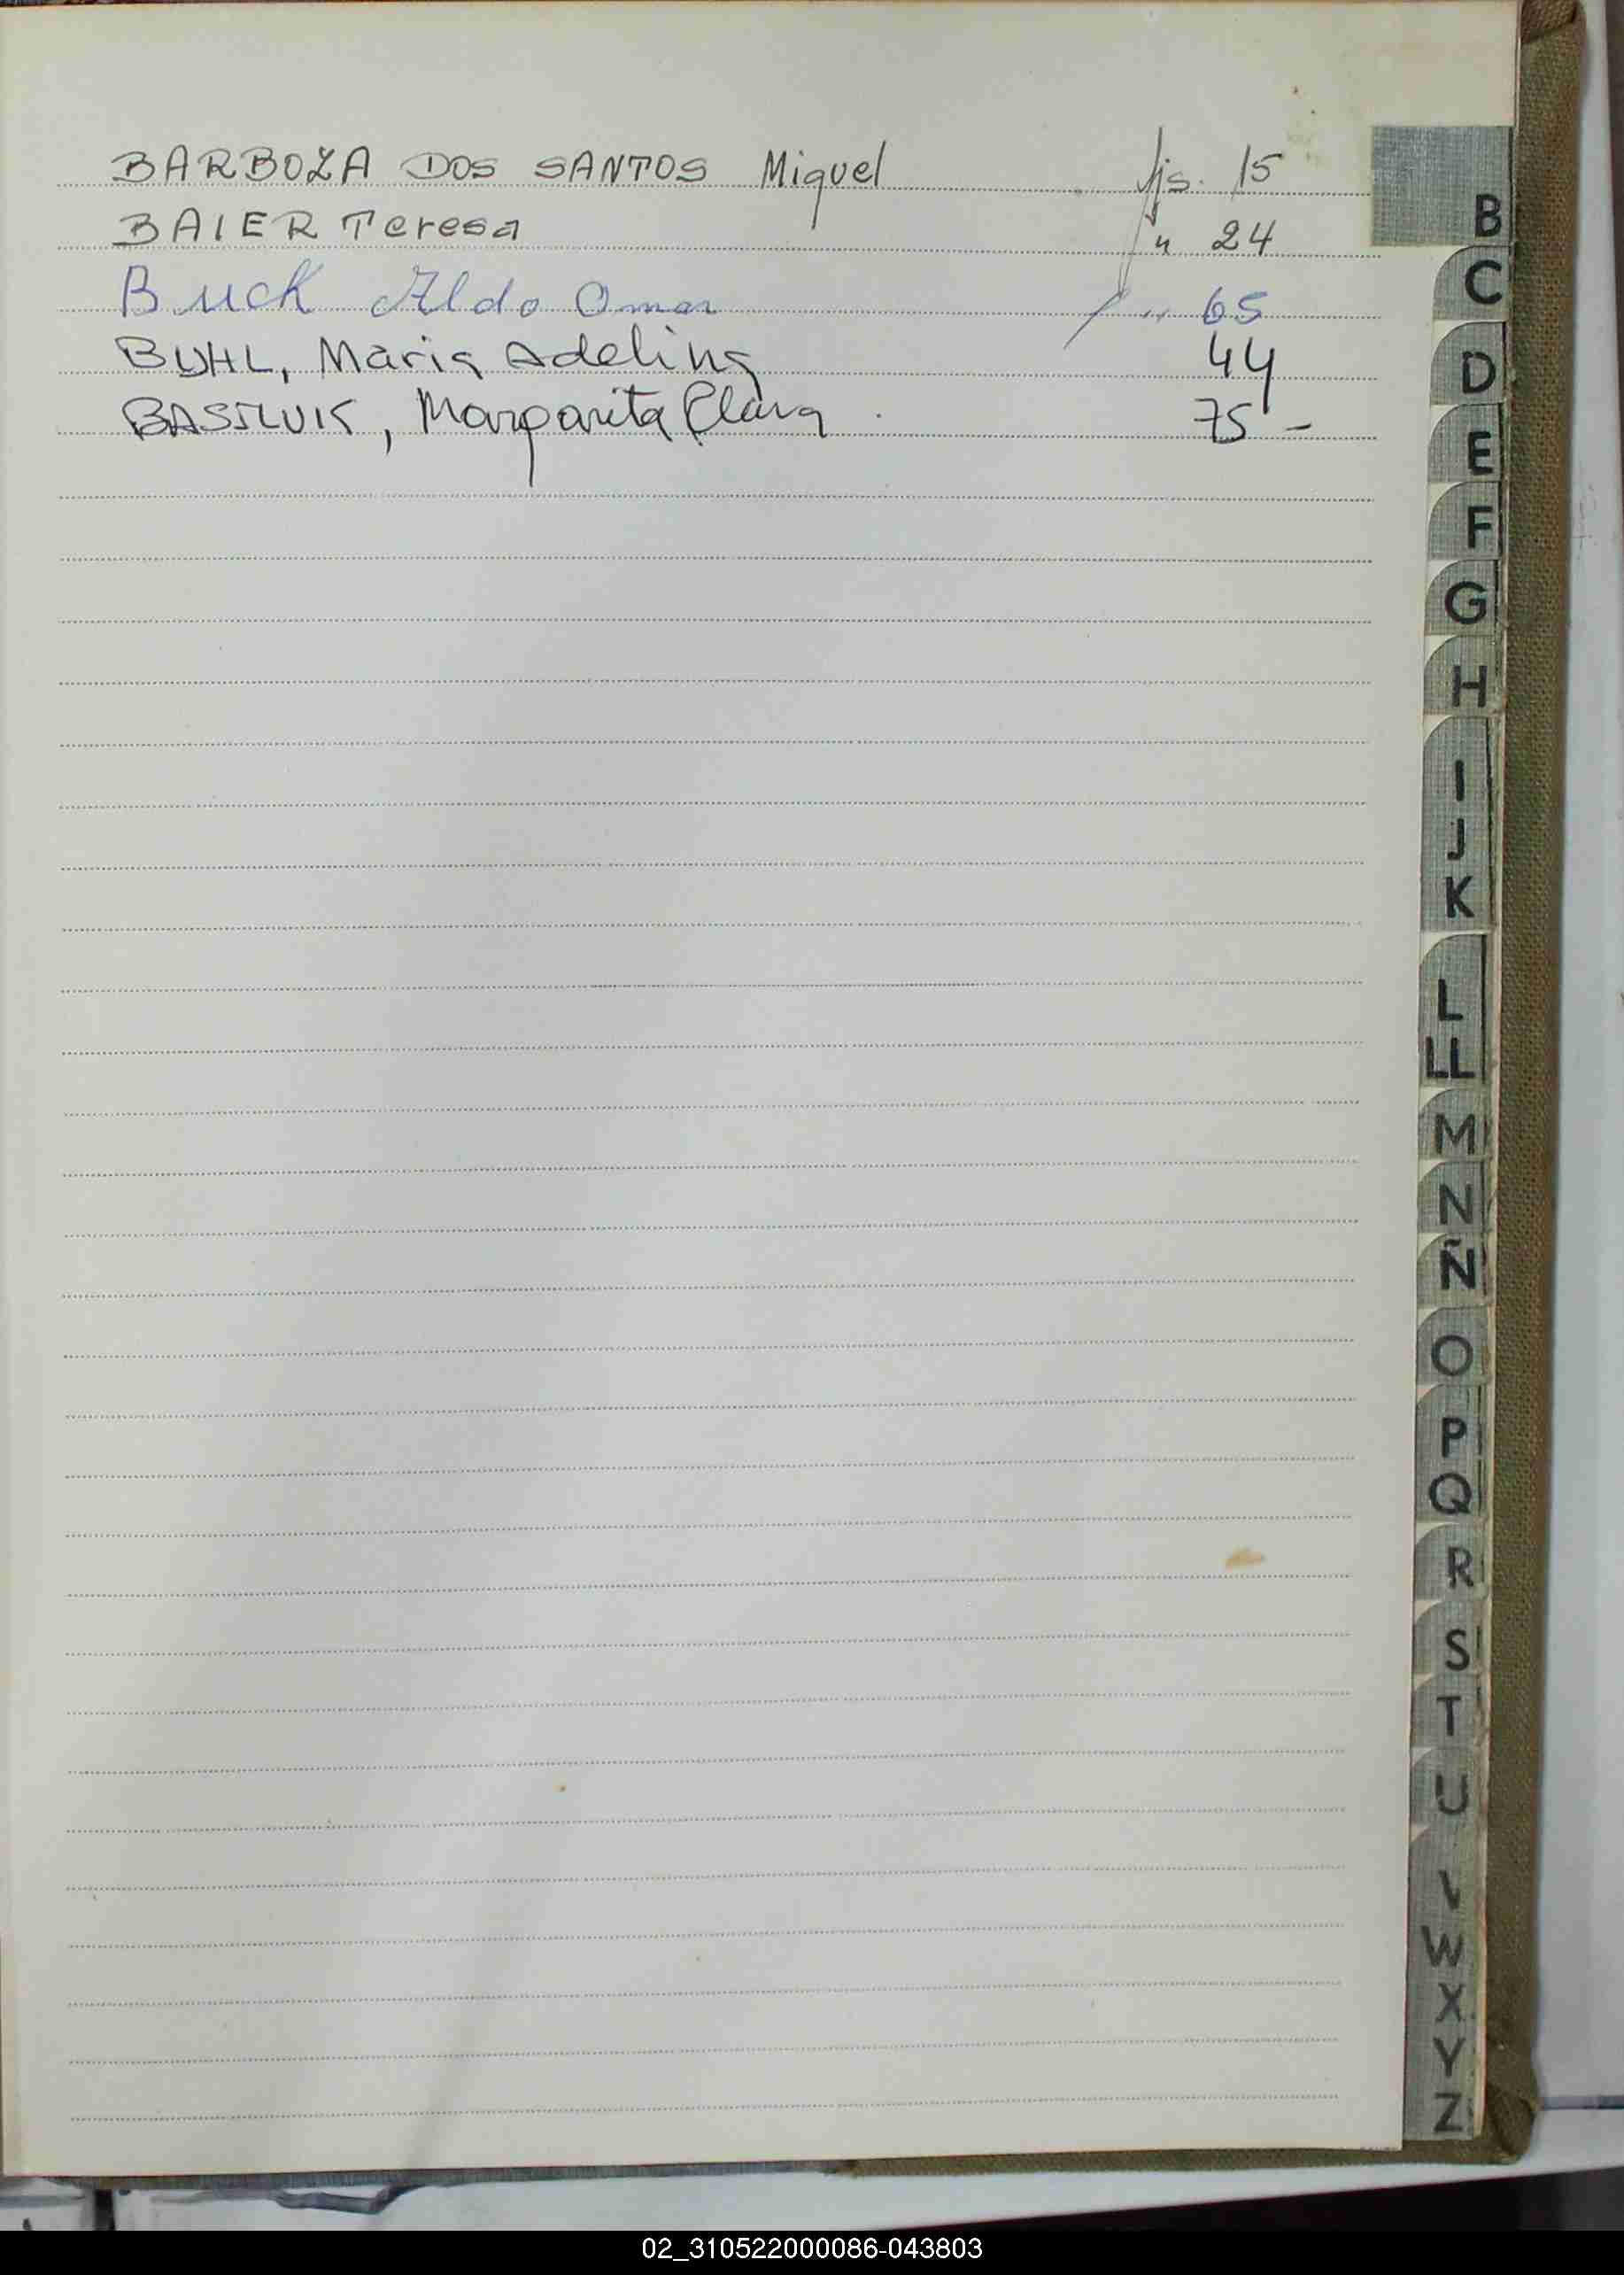 BARBOZA DOS SANTOS Miguel fjs. 15
BAIER Teresa " 24
Buck Aldo Omar " 65
BUHL, Maria Adelina 44
BASILUK, Margarita Clara 75 -
B
C
D
E
F
G
H
I
J
K
L
LL
M
N
Ñ
O
P
Q
R
S
T
U
V
W
X
Y
Z
02_310522000086-043803